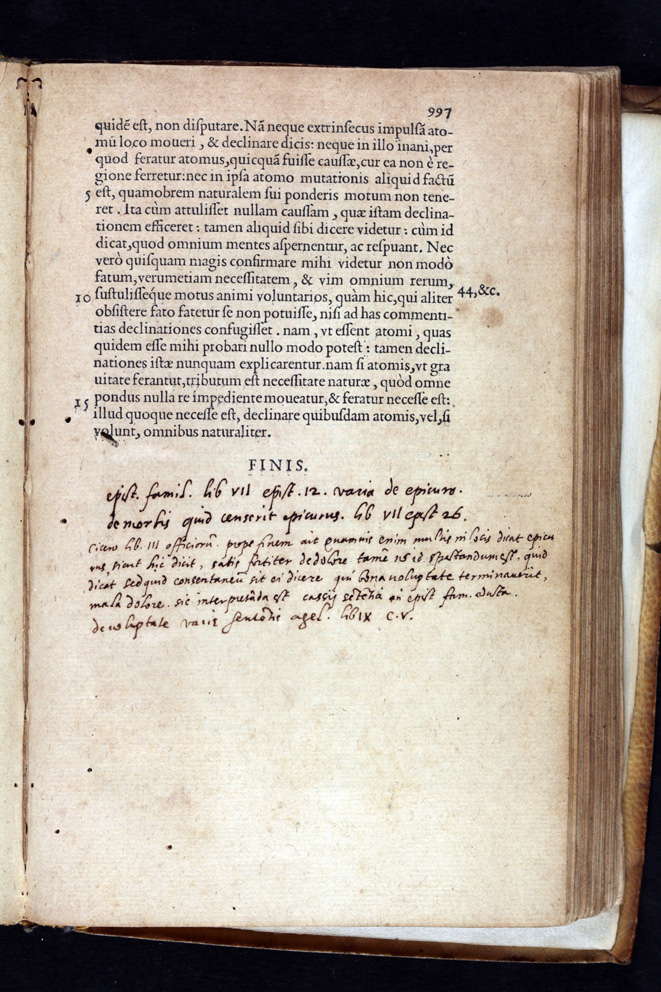 997
quidē est, non disputare. Nā neque extrinsecus impulsā ato-
mū loco moueri, & declinare dicis: neque in illo inani, per
quod feratur atomus, quicquā fuisse caussæ, cur ea non è re-
gione ferretur: nec in ipsa atomo mutationis aliquid factū
5 est, quamobrem naturalem sui ponderis motum non tene-
ret. Ita cùm attulisset nullam caussam, quæ istam declina-
tionem efficeret: tamen aliquid sibi dicere videtur: cùm id
dicat, quod omnium mentes aspernentur, ac respuant. Nec
verò quisquam magis confirmare mihi videtur non modò
fatum, verumetiam necessitatem, & vim omnium rerum,
10 sustulisséque motus animi voluntarios, quàm hic, qui aliter 44,&c.
obsistere fato fatetur se non potuisse, nisi ad has commenti-
tias declinationes confugisset. nam, vt essent atomi, quas
quidem esse mihi probari nullo modo potest: tamen decli-
nationes istæ nunquam explicarentur. nam si atomis, vt gra
uitate ferantur, tributum est necessitate naturæ, quòd omne
15 pondus nulla re impediente moueatur, & feratur necesse est:
illud quoque necesse est, declinare quibusdam atomis, vel, si
volunt, omnibus naturaliter.
FINIS.
epist. famil. lib VII epist. 12. varia de epicuro.
de morbis quid censerit epicurus. lib VII epist 26.
Cicero lib. III officiorū. prope finem ait quamuis enim multis in locis dicat epicu
rus, sicut hic dicit, satis fortiter de dolore tamē nō id spectandum est. quid
dicat sed quid consentaneū sit ei dicere qui bona uoluptate terminauerit,
mala dolore. sic interpretāda est cassij in epist fam.
de uoluptate varie agel. lib IX c. v.